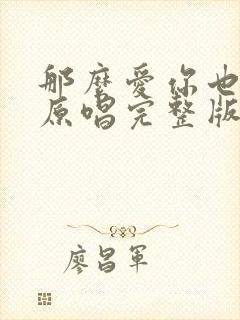 那麼愛你也
原唱完整版
廖昌軍